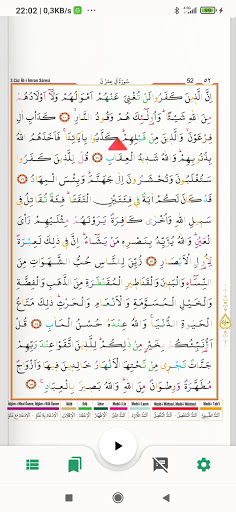 22:02 | 0,3KB/s
3.Cüz Âl-i İmran Sûresi سُورَةُ اٰلِ عِمْرٰنَ 52 ٥٢
اِنَّ الَّذ۪ينَ كَفَرُوا لَنْ تُغْنِيَ عَنْهُمْ اَمْوَالُهُمْ وَلَٓا اَوْلَادُهُمْ
مِنَ اللّٰهِ شَيْـًٔا وَاُو۬لٰٓئِكَ هُمْ وَقُودُ النَّارِۙ ﴿١٠﴾ كَدَأْبِ اٰلِ
فِرْعَوْنَۙ وَالَّذ۪ينَ مِنْ قَبْلِهِمْۜ كَذَّبُوا بِاٰيَاتِنَاۚ فَاَخَذَهُمُ اللّٰهُ
بِذُنُوبِهِمْۜ وَاللّٰهُ شَد۪يدُ الْعِقَابِ ﴿١١﴾ قُلْ لِلَّذ۪ينَ كَفَرُوا
سَتُغْلَبُونَ وَتُحْشَرُونَ اِلٰى جَهَنَّمَۜ وَبِئْسَ الْمِهَادُ ﴿١٢﴾
قَدْ كَانَ لَكُمْ اٰيَةٌ ف۪ي فِئَتَيْنِ الْتَقَتَاۜ فِئَةٌ تُقَاتِلُ ف۪ي
سَب۪يلِ اللّٰهِ وَاُخْرٰى كَافِرَةٌ يَرَوْنَهُمْ مِثْلَيْهِمْ رَأْيَ
الْعَيْنِۜ وَاللّٰهُ يُؤَيِّدُ بِنَصْرِه۪ مَنْ يَشَٓاءُۜ اِنَّ ف۪ي ذٰلِكَ لَعِبْرَةً
لِاُو۬لِي الْاَبْصَارِ ﴿١٣﴾ زُيِّنَ لِلنَّاسِ حُبُّ الشَّهَوَاتِ مِنَ
النِّسَٓاءِ وَالْبَن۪ينَ وَالْقَنَاط۪يرِ الْمُقَنْطَرَةِ مِنَ الذَّهَبِ وَالْفِضَّةِ
وَالْخَيْلِ الْمُسَوَّمَةِ وَالْاَنْعَامِ وَالْحَرْثِۜ ذٰلِكَ مَتَاعُ
الْحَيٰوةِ الدُّنْيَاۚ وَاللّٰهُ عِنْدَهُ حُسْنُ الْمَاٰبِ ﴿١٤﴾ قُلْ
اَؤُ۬نَبِّئُكُمْ بِخَيْرٍ مِنْ ذٰلِكُمْۜ لِلَّذ۪ينَ اتَّقَوْا عِنْدَ رَبِّهِمْ
جَنَّاتٌ تَجْر۪ي مِنْ تَحْتِهَا الْاَنْهَارُ خَالِد۪ينَ ف۪يهَا وَاَزْوَاجٌ
مُطَهَّرَةٌ وَرِضْوَانٌ مِنَ اللّٰهِۜ وَاللّٰهُ بَص۪يرٌ بِالْعِبَادِۚ ﴿١٥﴾